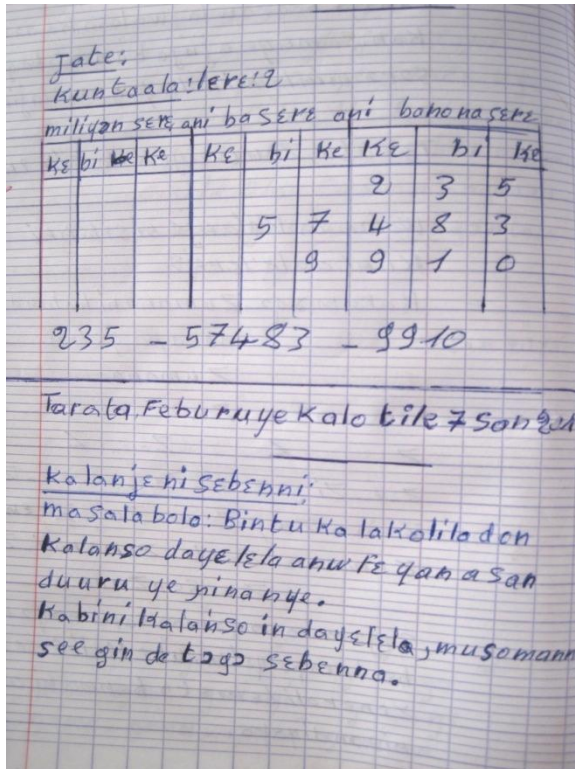 Jate:
Kuntaala: lɛrɛ: 2
miliyɔn sɛrɛ ani ba sɛrɛ ani bonona sɛrɛ
Kɛ bi Ke Kɛ bi Ke Kɛ bi Ke
2 3 5
5 7 4 8 3
9 9 1 0
235 - 57483 - 9910
Tarata, Feburuye Kalo tile 7 San
Kalanjɛ ni sɛbɛnni:
masalabolo: Bintu ka lakɔlila don
Kalanso dayɛlɛla anw fɛ yan a san
duuru ye ninan ye.
Kabini kalanso in dayɛlɛla, musomann
seegin de tɔgɔ sɛbɛnna.